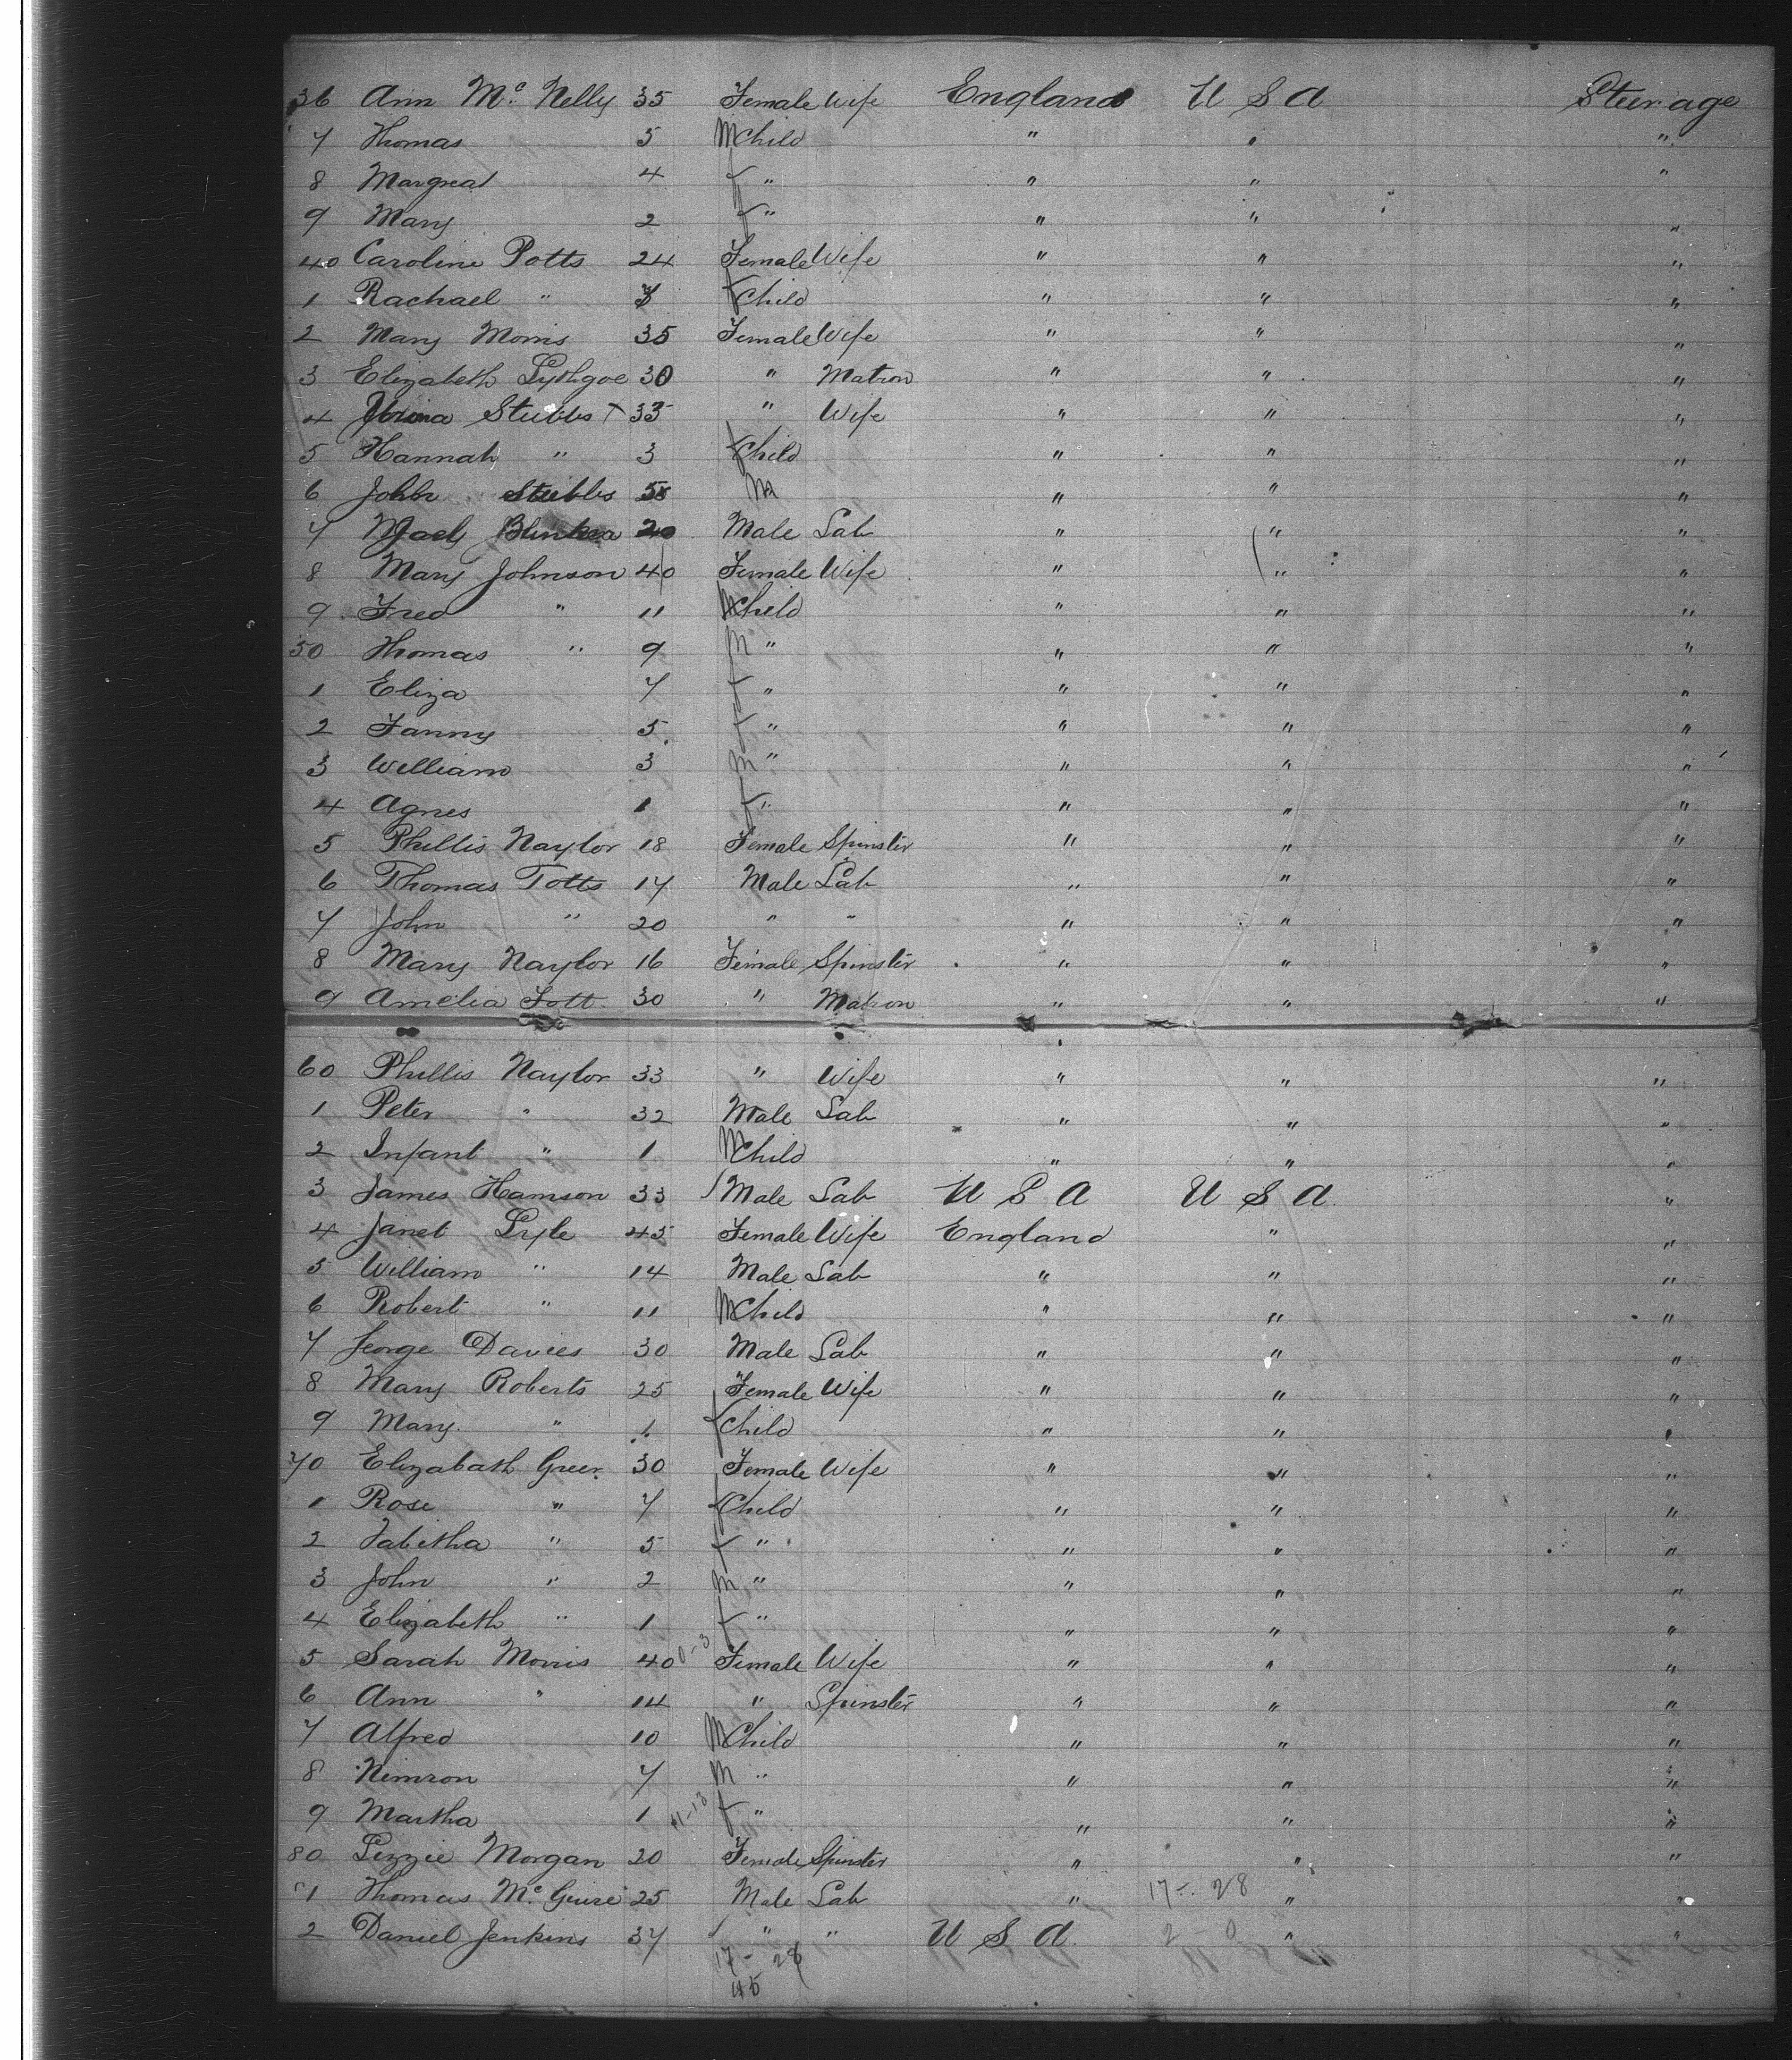 36 Ann Mc Nelly 35 Female Wife England U S A Steerage
7 Thomas 5 M Child " " "
8 Margreat 4 f " " " "
9 Mary 2 f " " " "
40 Caroline Potts 24 Female Wife " " "
1 Rachael " f Child " " "
2 Mary Morris 35 Female Wife " " "
3 Elizabeth Lythgoe 30 " Matron " " "
4 Stubbs 33 " Wife " " "
5 Hannah " 3 f Child " " "
6 John Stubbs M " " "
7 20 Male Lab " " "
8 Mary Johnson 40 Female Wife " " "
9 Fred " 11 M Child " " "
50 Thomas " 9 M " " " "
1 Eliza 7 f " " " "
2 Fanny 5 f " " " "
3 William 3 M " " " "
4 Agnes 1 f " " " "
5 Phillis Naylor 18 Female Spinster " " "
6 Thomas Totts 17 Male Lab " " "
7 John " 20 " " " " "
8 Mary Naylor 16 Female Spinster " " "
9 Amelia Tott 30 " Matron " " "
60 Phillis Naylor 33 " Wife " " "
1 Peter " 32 Male Lab " " "
2 Infant " 1 M Child " " "
3 James Hamson 33 / Male Lab U S A U S A "
4 Janet Lyle 45 Female Wife England " "
5 William " 14 Male Lab " " "
6 Robert " 11 M Child " " "
7 George Davies 30 Male Lab " " "
8 Mary Roberts 25 Female Wife " " "
9 Mary " 1 f Child " " "
70 Elizabath Greer 30 Female Wife " " "
1 Rose " 7 f Child " " "
2 Tabitha " 5 f " " " "
3 John " 2 M " " " "
4 Elizabeth " 1 f " " " "
5 Sarah Morris 40 0-3 Female Wife " " "
6 Ann " 14 " Spinster " " "
7 Alfred 10 M Child " " "
8 Nimron 7 M " " " "
9 Martha 1 11-13 f " " " "
80 Lizzie Morgan 20 Female Spinster " " "
1 Thomas Mc Guire 25 Male Lab " 17-28 " "
2 Daniel Jenkins 37 / " " U S A 2 0 " "
17-28
45